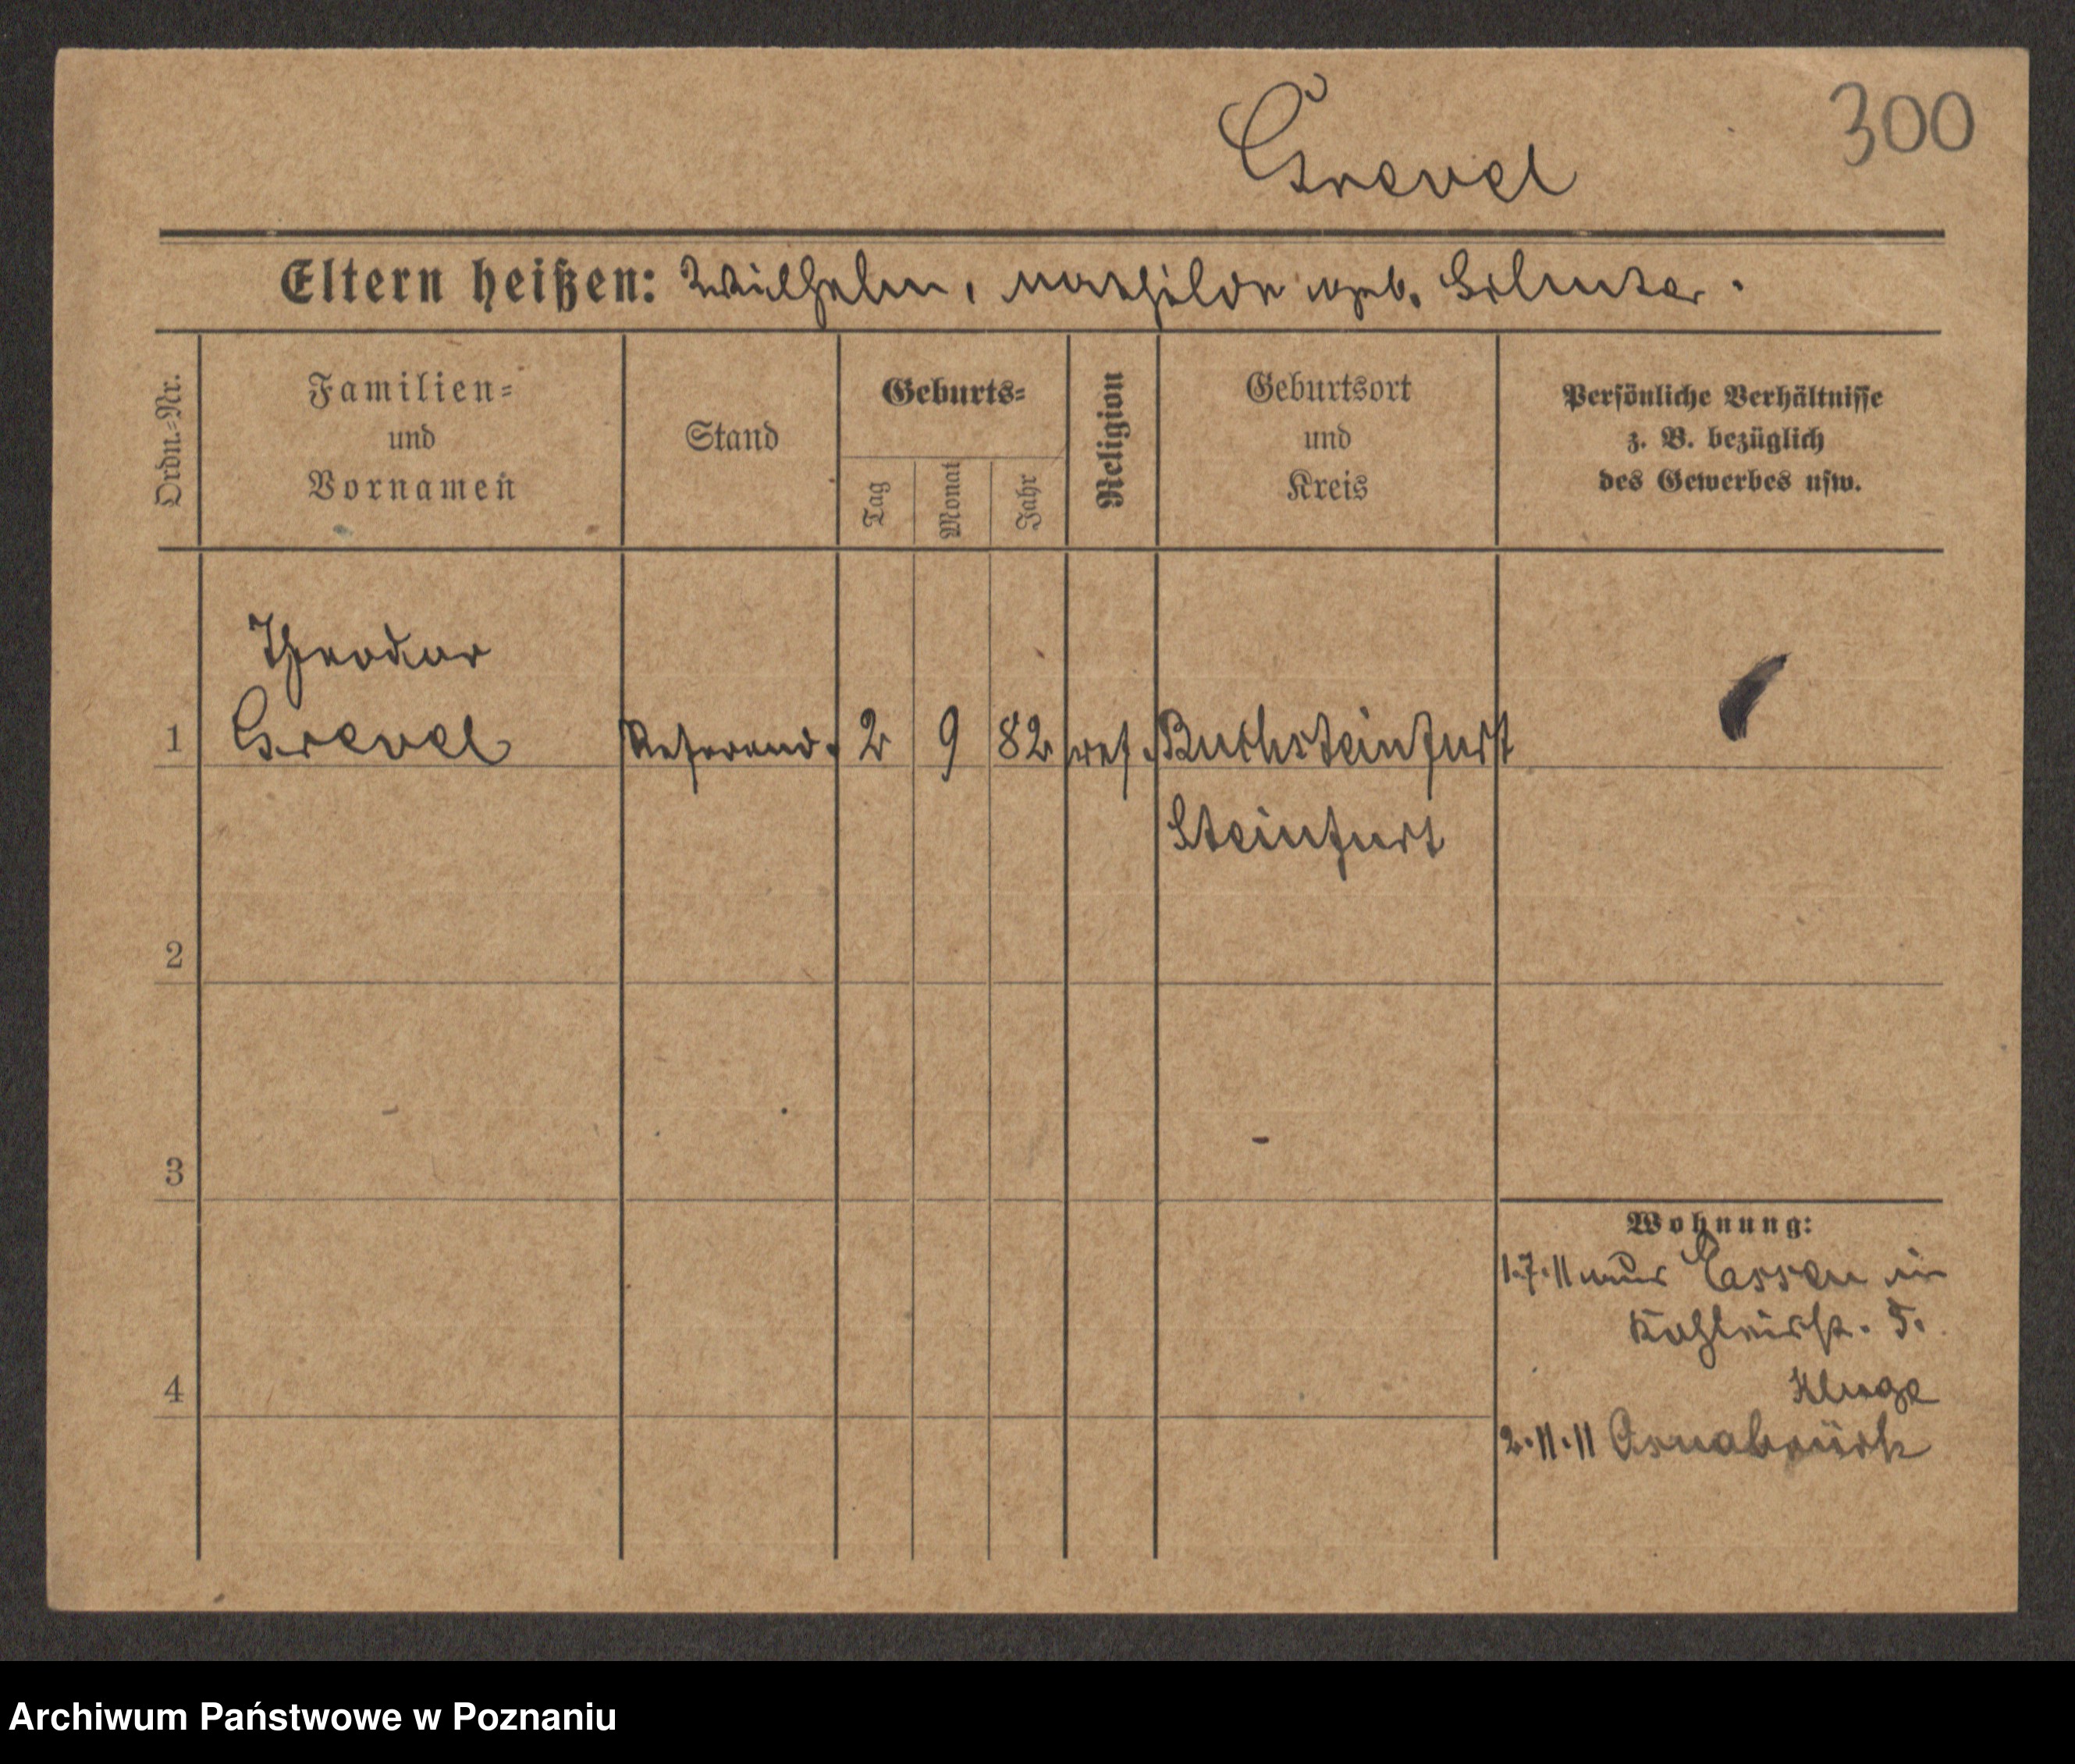 300
Grevel
Eltern heißen: Wilhelm, Mathilde geb.
Ordn.-Nr.
Familien=
und
Vornamen
Stand
Geburts=
Tag
Monat
Jahr
Religion
Geburtsort
und
Kreis
Persönliche Verhältnisse
z. B. bezüglich
des Gewerbes usw.
Theodor
1 Grevel Referend. 2 9 82 ref. Burgsteinfurt
Steinfurt
2
3
4
Wohnung:
1.7.11 aus Essen in
5.
Kluge
2.11.11 Osnabrück
Archiwum Państwowe w Poznaniu